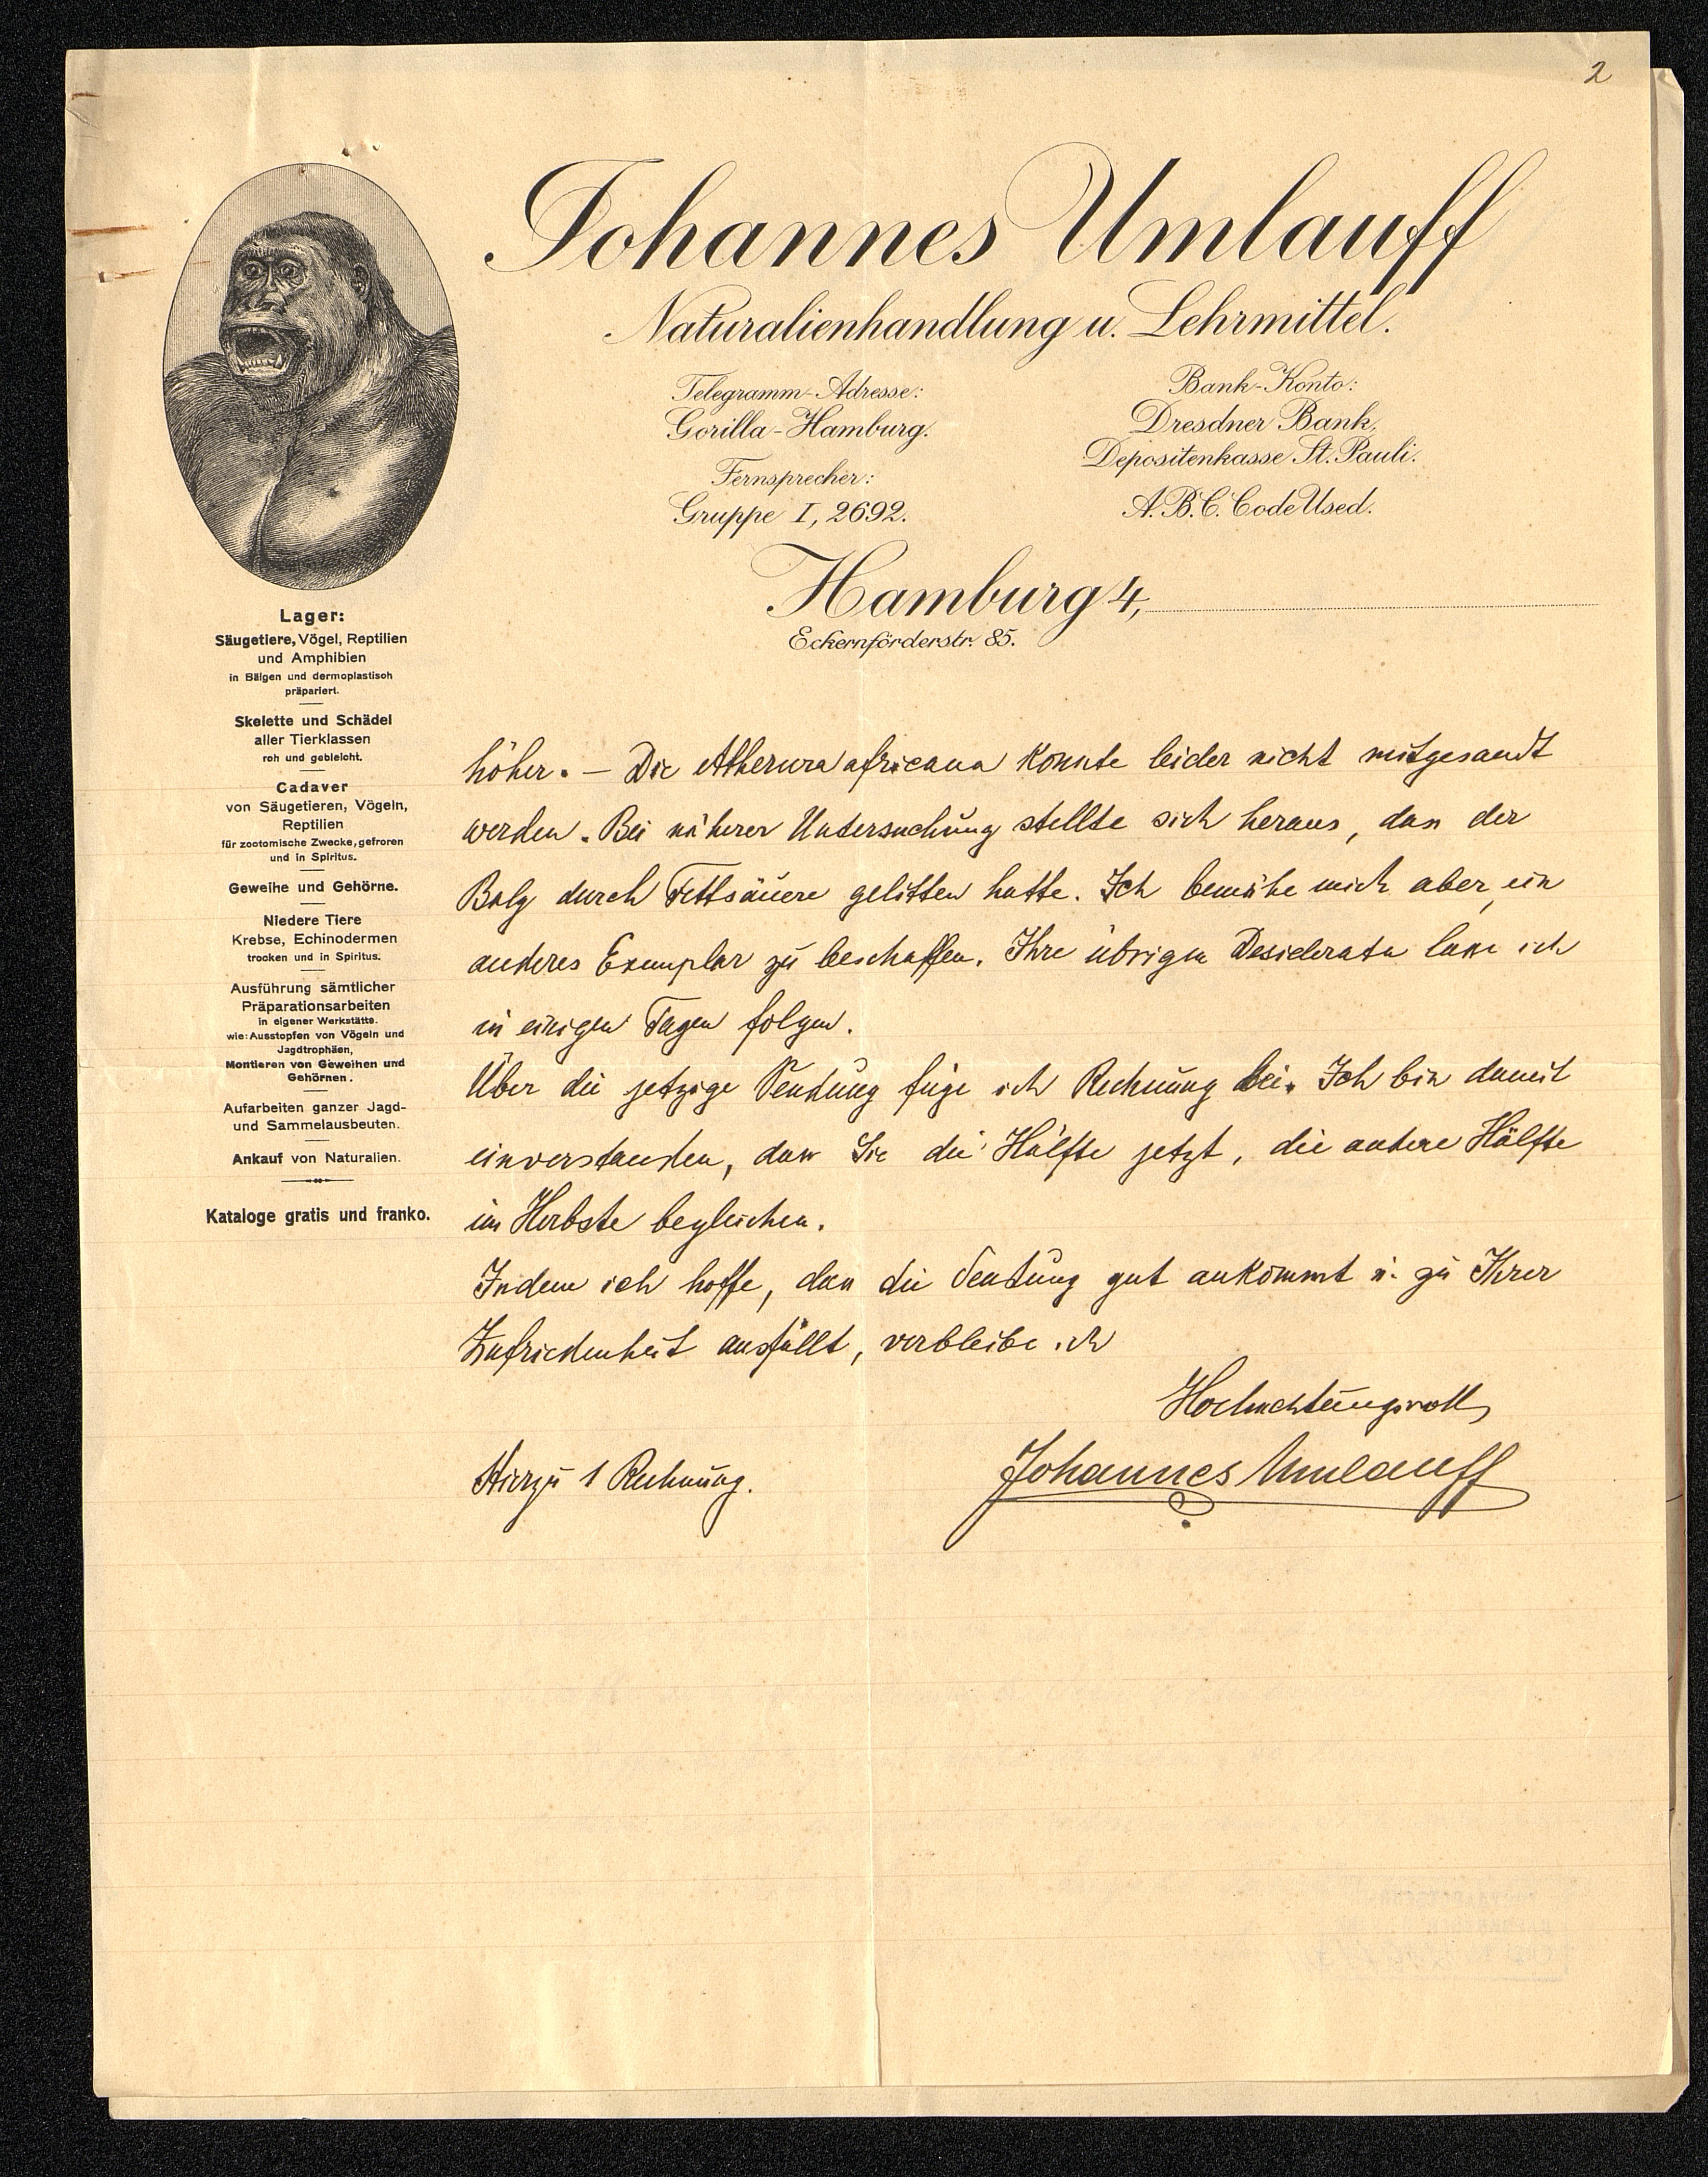 2
Johannes Umlauff
Naturalienhandlung u. Lehrmittel.
Telegramm-Adresse:
Gorilla-Hamburg.
Fernsprecher:
Gruppe I, 2692.
Bank-Konto:
Dresdner Bank,
Depositenkasse St. Pauli.
A.B.C. Code Used.
Hamburg 4,
Eckernförderstr. 85.
Lager:
Säugetiere, Vögel, Reptilien
und Amphibien
in Bälgen und dermoplastisch
präpariert.
Skelette und Schädel
aller Tierklassen
roh und gebleicht.
Cadaver
von Säugetieren, Vögeln,
Reptilien
für zootomische Zwecke, gefroren
und in Spiritus.
Geweihe und Gehörne.
Niedere Tiere
Krebse, Echinodermen
trocken und in Spiritus.
Ausführung sämtlicher
Präparationsarbeiten
in eigener Werkstätte.
wie: Ausstopfen von Vögeln und
Jagdtrophäen,
Montieren von Geweihen und
Gehörnen.
Aufarbeiten ganzer Jagd-
und Sammelausbeuten.
Ankauf von Naturalien.
Kataloge gratis und franko.
höher. — Die Atherura africana konnte leider nicht mitgesandt
werden. Bei näherer Untersuchung stellte sich heraus, dass der
Balg durch Fettsäuere gelitten hatte. Ich bemühe mich aber, ein
anderes Exemplar zu beschaffen. Ihre übrigen Desiderata lasse ich
in einigen Tagen folgen.
Über die jetzige Sendung füge ich Rechnung bei. Ich bin damit
einverstanden, dass Sie die Hälfte jetzt, die andere Hälfte
im Herbste begleichen.
Indem ich hoffe, dass die Sendung gut ankommt u. zu Ihrer
Zufriedenheit ausfällt, verbleibe ich
Hochachtungsvoll
Johannes Umlauff
Hierzu 1 Rechnung.